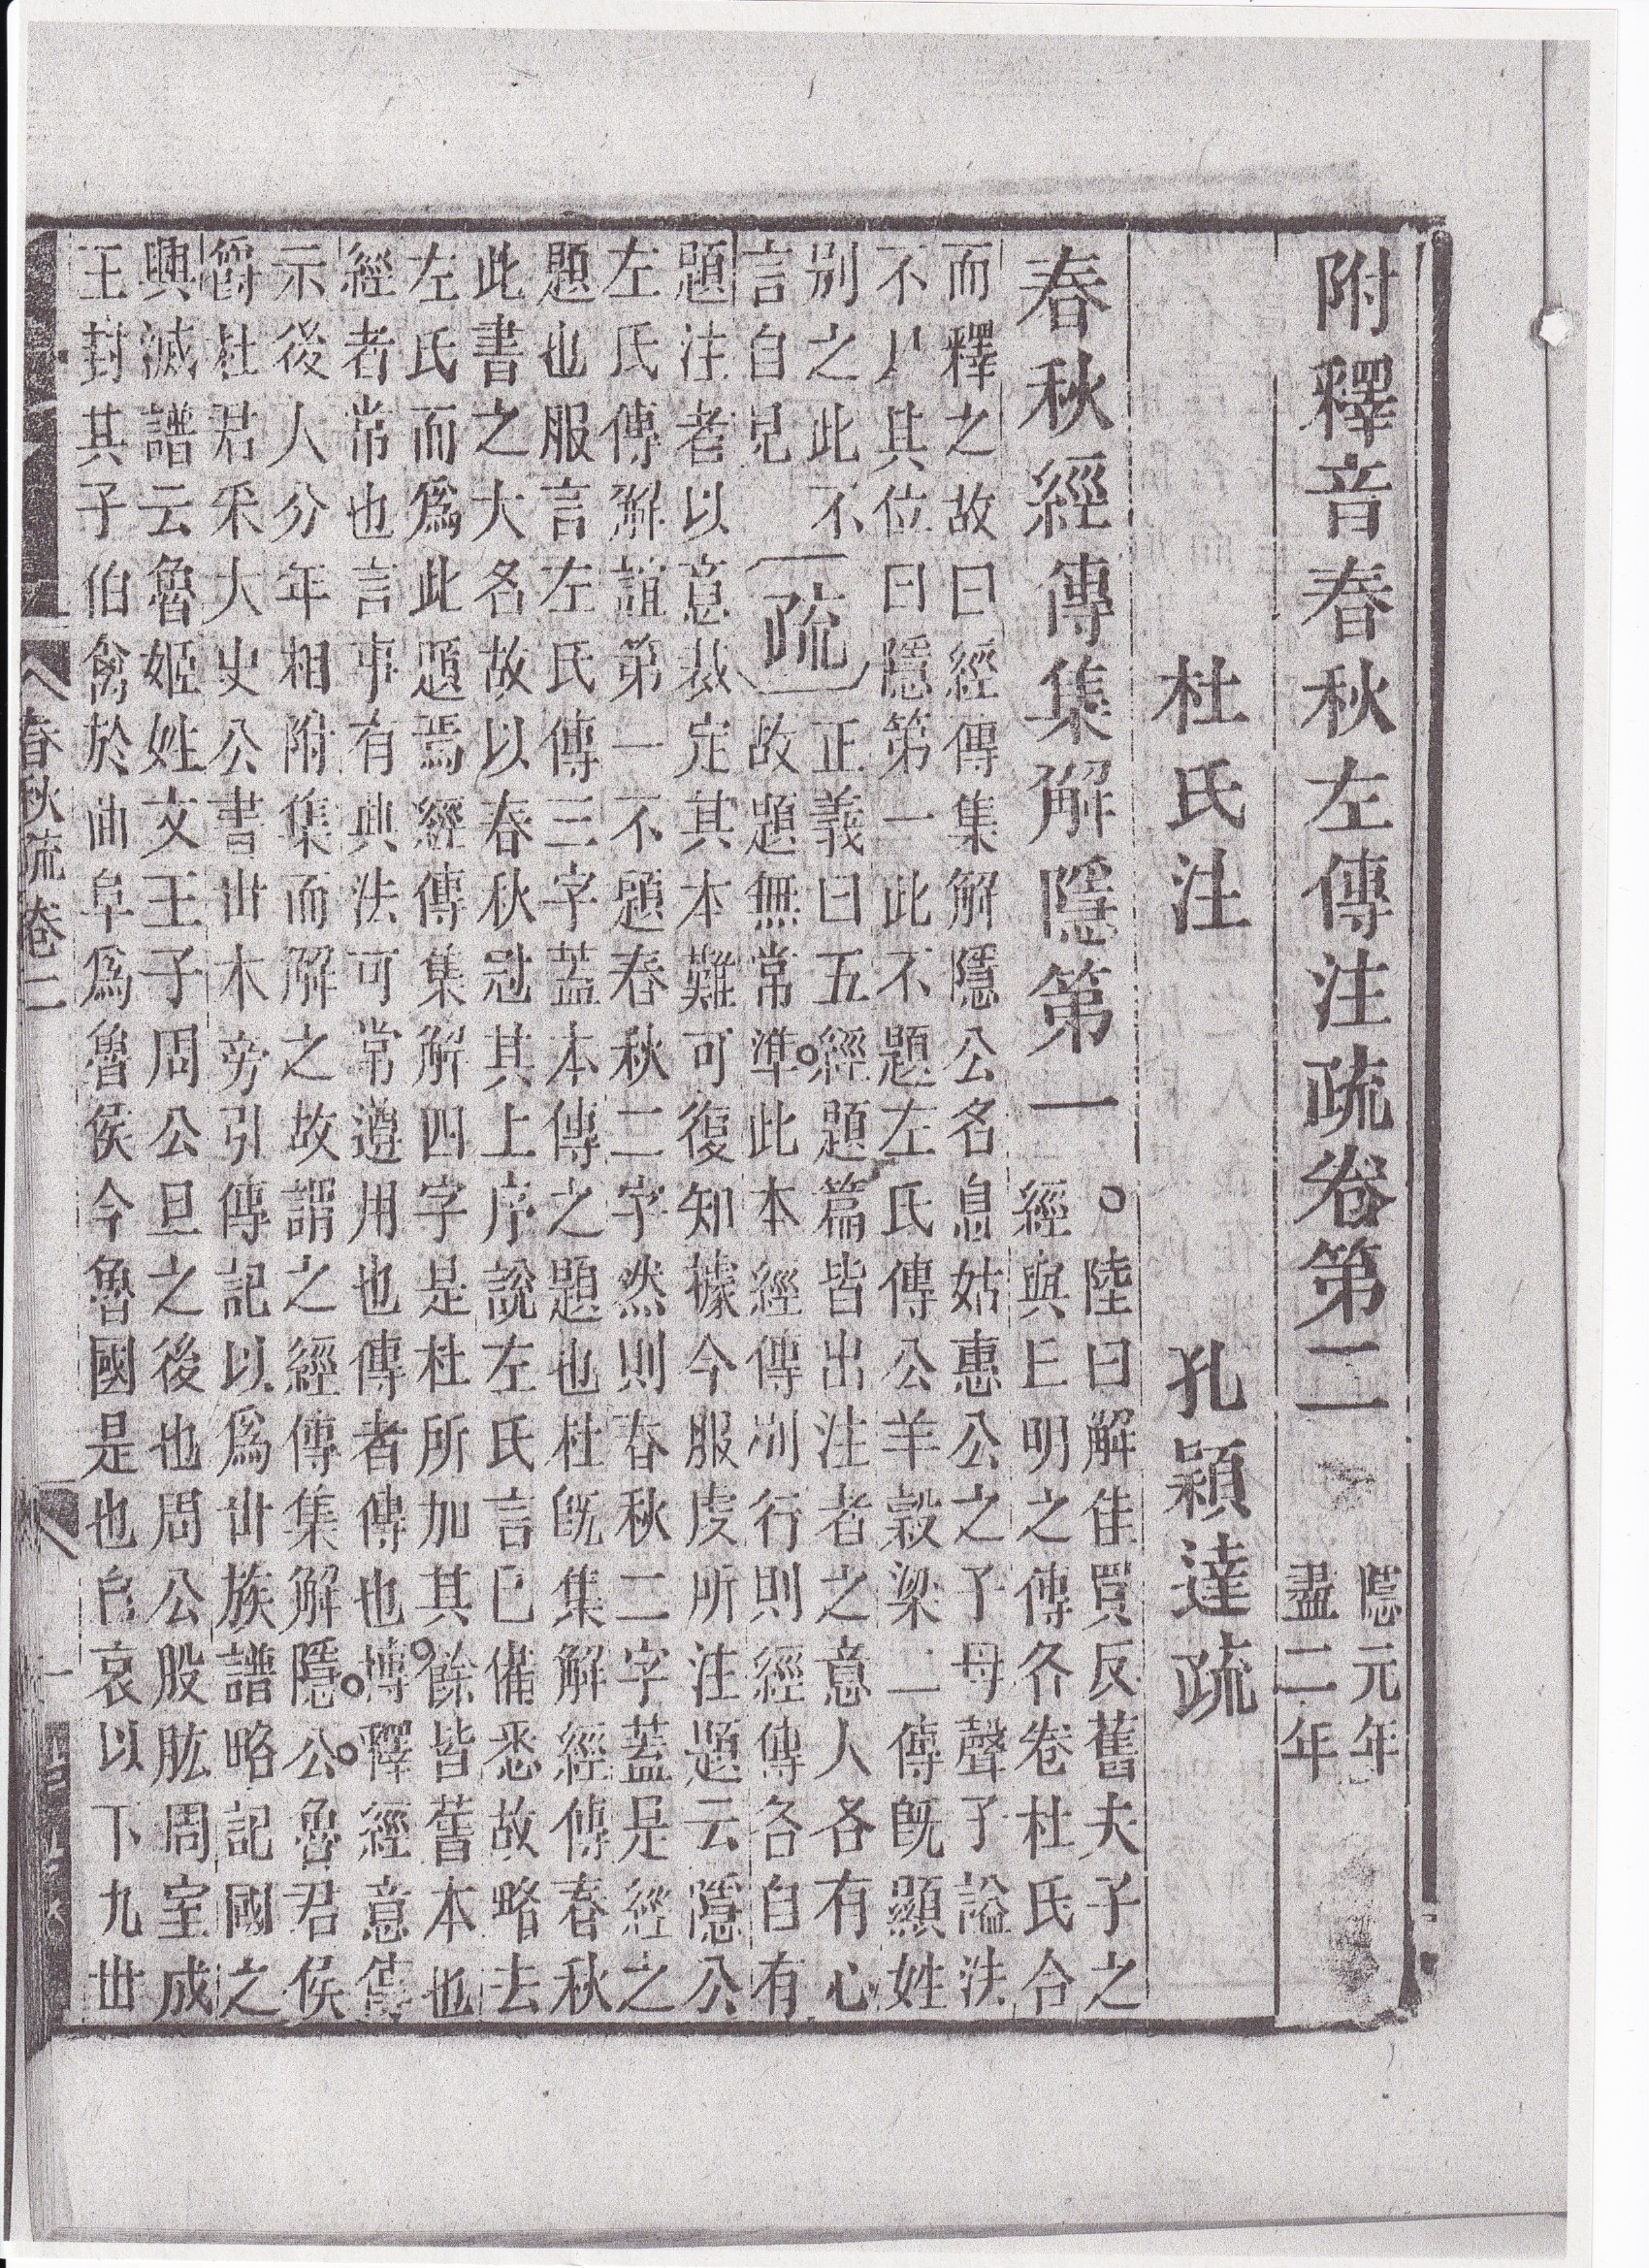 附釋音春秋左傳注疏卷第二
隱元年
盡二年
杜氏注 孔穎達疏
春秋經傳集解隱第一
○陸曰解佳買反舊夫子之
經與丘明之傳各卷杜氏合
而釋之故曰經傳集解隱公名息姑惠公之子母聲子謚法
不尸其位曰隱第一此不題左氏傳公羊穀梁二傳既顯姓
別之此不
言自見
疏
正義曰五經題篇皆出注者之意人各有心
故題無常準此本經傳別行則經傳各自有
題注者以意裁定其本難可復知據今服虔所注題云隱公
左氏傳解誼第一不題春秋二字然則春秋二字蓋是經之
題也服言左氏傳三字蓋本傳之題也杜既集解經傳春秋
此書之大名故以春秋冠其上序說左氏言已備悉故略去
左氏而爲此題焉經傳集解四字是杜所加其餘皆舊本也
經者常也言事有典法可常遵用也傳者傳也博釋經意傳
示後人分年相附集而解之故謂之經傳集解隱公魯君侯
爵杜君采大史公書丗本旁引傳記以爲丗族譜略記國之
興滅譜云魯姬姓文王子周公旦之後也周公股肱周室成
王封其子伯禽於曲阜爲魯侯今魯國是也自哀以下九丗
春秋疏卷二
一